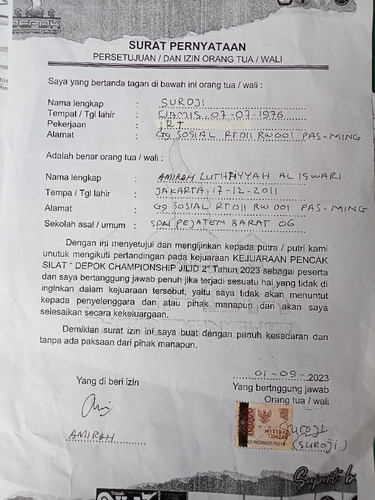 DEPOK
SURAT PERNYATAAN
PERSETUJUAN / DAN IZIN ORANG TUA / WALI
Saya yang bertanda tagan di bawah ini orang tua / wali :
Nama lengkap : SUROJI
Tempat / Tgl lahir : CIAMIS, 07-07-1976
Pekerjaan : IRT
Alamat : Gg SOSIAL RT 011 RW 001 PAS-MING
Adalah benar orang tua / wali :
Nama lengkap : AMIRAH LUTHFIYYAH AL ISWARI
Tempa / Tgl lahir : JAKARTA, 17-12-2011
Alamat : Gg SOSIAL RT 011 RW 001 PAS-MING
Sekolah asal / umum : SDN PEJATEN BARAT 06
Dengan ini menyetujui dan mengijinkan kepada putra / putri kami
untuk mengikuti pertandingan pada kejuaraan KEJUARAAN PENCAK
SILAT " DEPOK CHAMPIONSHIP JILID 2" Tahun 2023 sebagai peserta
dan saya bertanggung jawab penuh jika terjadi sesuatu hal yang tidak di
inginkan dalam kejuaraan tersebut, yaitu saya tidak akan menuntut
kepada penyelenggara dan atau pihak manapun dan akan saya
selesaikan secara kekeluargaan.
Demikian surat izin ini saya buat dengan penuh kesadaran dan
tanpa ada paksaan dari pihak manapun.
01-09-2023
Yang di beri izin
Yang bertnggung jawab
Orang tua / wali
AMIRAH
METERAI
TEMPEL
SUROJI
(SUROJI)